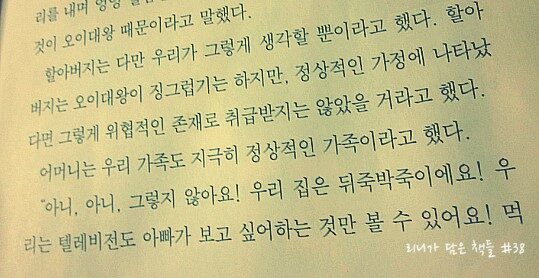 리를 내며 엉엉
것이 오이대왕 때문이라고 말했다.
할아버지는 다만 우리가 그렇게 생각할 뿐이라고 했다. 할아
버지는 오이대왕이 징그럽기는 하지만, 정상적인 가정에 나타났
다면 그렇게 위협적인 존재로 취급받지는 않았을 거라고 했다.
어머니는 우리 가족도 지극히 정상적인 가족이라고 했다.
“아니, 아니, 그렇지 않아요! 우리 집은 뒤죽박죽이에요! 우
리는 텔레비전도 아빠가 보고 싶어하는 것만 볼 수 있어요! 먹
리니가 담은 책들 #38